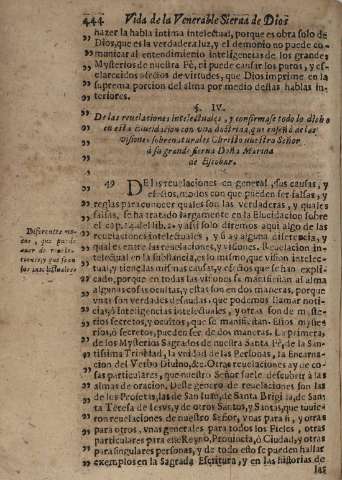 444 Vida de la Venerable Sierua de Dios
hazer la habla intima intelectual, porque es obra solo de
Dios, que es la verdadera luz, y el demonio no puede co-
municar al entendimiento inteligencias de los grandes
Mysterios de nuestra Fè, ni puede causar los puros, y es-
clarecidos efectos de virtudes, que Dios imprime en la
suprema porcion del alma por medio destas hablas in-
teriores.
§. IV.
De las reuelaciones intelectuales, y confirmase todo lo dicho
en esta elucidacion con vna doctrina, que enseñò de las
visiones sobrenaturales Christo nuestro Señor
à su grande sierua Doña Marina
de Escobar.
Diferentes mo-
dos, que
19 DE las reuelaciones en general, sus causas, y
efectos, modos con que pueden ser falsas, y
reglas para conocer quales son las verdaderas, y quales
falsas, se ha tratado largamente en la Elucidacion sobre
el cap. 14. del lib. 2. y assi solo diremos aqui algo de las
reuelaciones intelectuales, y si ay alguna diferencia, y
qual es entre las reuelaciones, y visiones. Reuelacion in-
telectual en la substancia, es lo mismo, que vision intelec-
tual, y tiene las mismas causas, y efectos que se han expli-
cado, porque en todas las visiones se manifiestan al alma
algunas cosas ocultas, y estas son en dos maneras, porque
vnas son verdades desnudas, que podemos llamar noti-
cias, ò inteligencias intelectuales, y otras son de myste-
rios secretos, y ocultos, que se manifiestan. Estos myste-
rios, ò secretos, pueden ser de dos maneras. La primera,
de los Mysterios Sagrados de nuestra Santa Fè, de la San-
tissima Trinidad, la vnidad de las Personas, la Encarna-
cion del Verbo Diuino, &c. Otras reuelaciones ay de co-
sas particulares, que nuestro Señor suele descubrir à las
almas de oracion. Deste genero de reuelaciones son las
de los Profetas, las de San Iuan, de Santa Brigida, de San-
ta Teresa de Iesus, y de otros Santos, y Santas, que tuuie-
ron reuelaciones de nuestro Señor, vnas para si, y otras
para vniuersales, y para todos los Fieles, otras
particulares para este Reyno, Prouincia, ò Ciudad, y otras
para singulares personas, y de todo esto se pueden hallar
exemplos en la Sagrada Escritura, y en las historias de
las